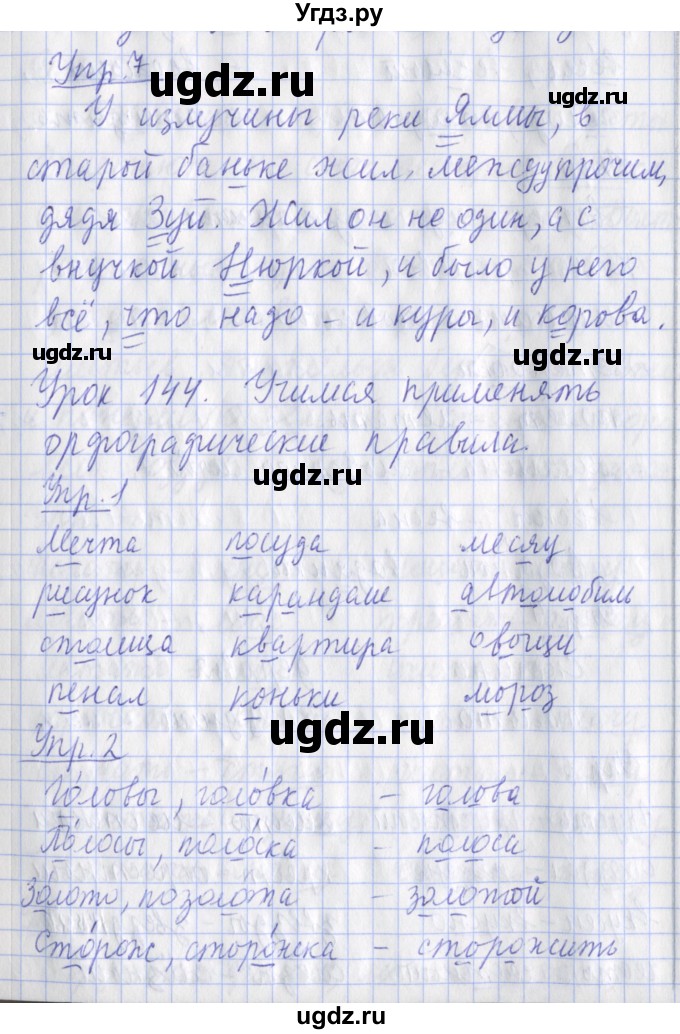 Угдз.ру
Упр. 7
ugdz.ru
У излучины реки Яммы, в
старой баньке жил, междупрочим,
дядя Зуй. Жил он не один, а с
внучкой Нюркой, и было у него
всё, что надо – и куры, и корова.
ugdz.ru ugdz.ru
Урок 144. Учимся применять
орфографические правила.
ugdz.ru
Упр. 1
Мечта посуда месяц
рисунок карандаш автомобиль
столица квартира овощи
пенал коньки мороз
ugdz.ru
Упр. 2
Го́ловы, голо́вка – голова
По́лосы, поло́ска – полоса
Зо́лото, позоло́та – золотой
Сто́рож, сторо́жка – сторожить
ugdz.ru